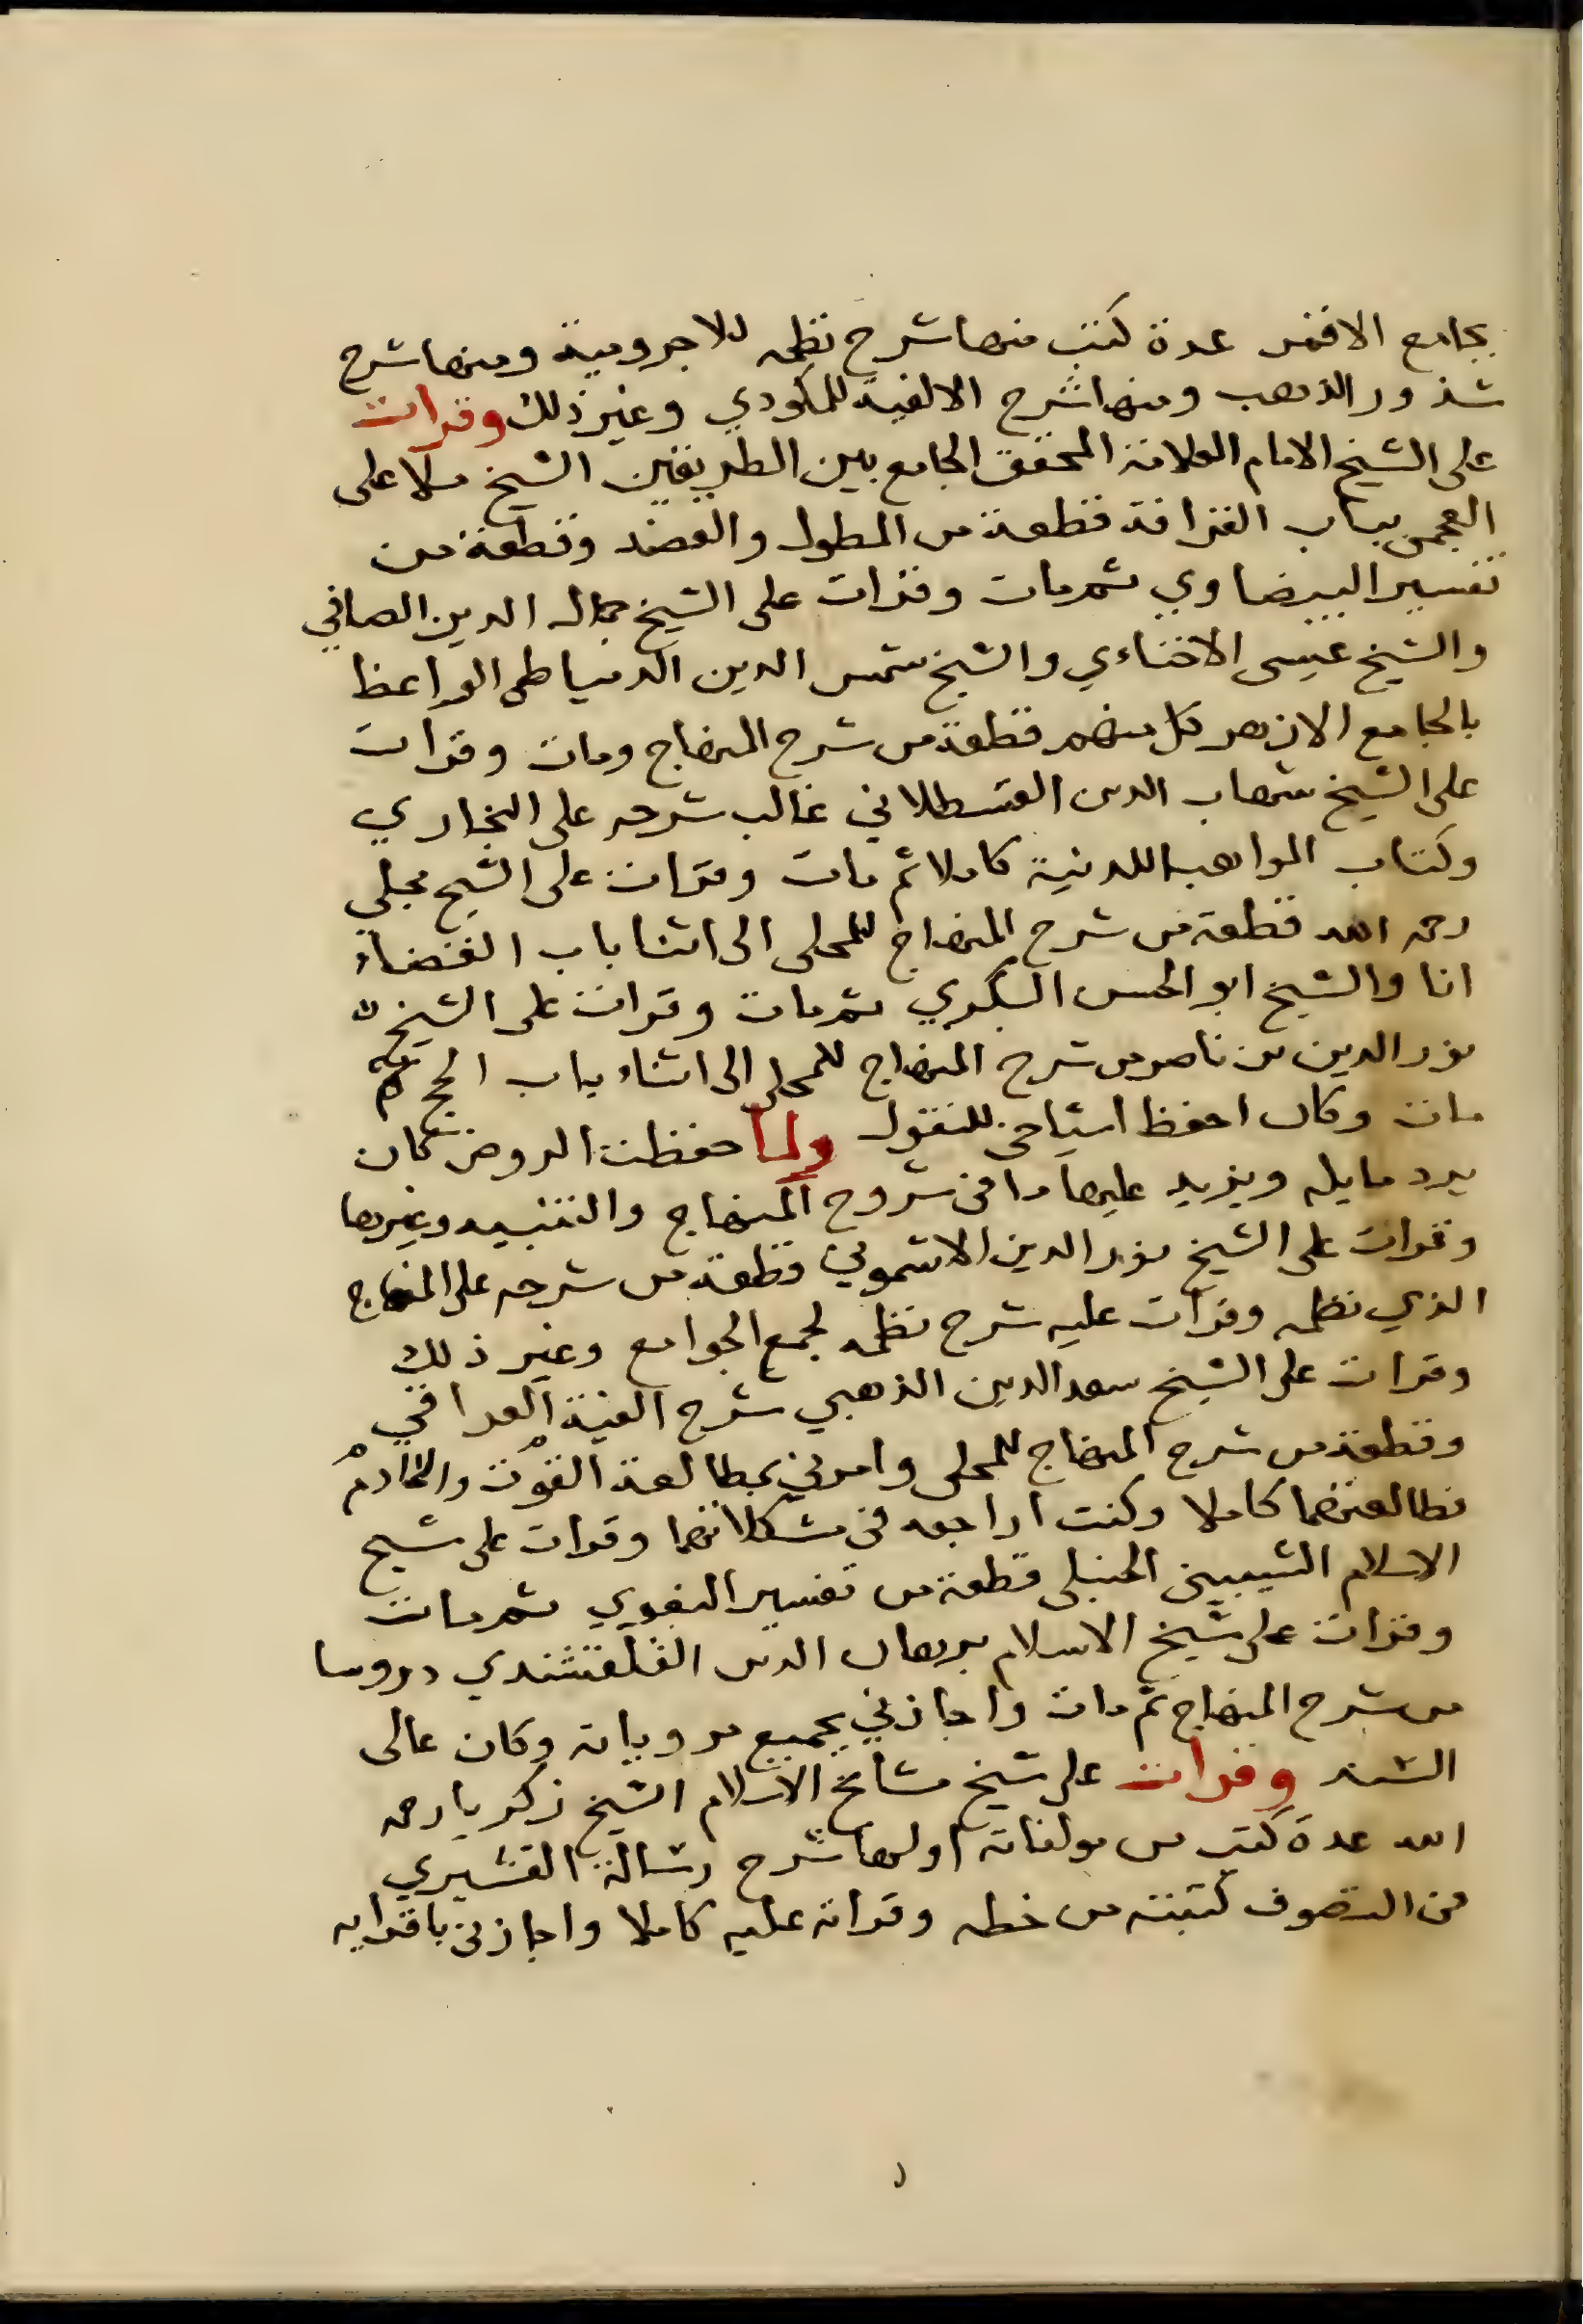 بجامع الاقمر عدة كتب منها شرح نظمه للاجرومية ومنها شرح
شذور الذهب ومنها شرح الالفية للمكودي وغير ذلك وقرات
على الشيخ الامام العلامة المحقق الجامع بين الطريقين الشيخ ملا على
العجمى بباب القرافة قطعة من المطول والعضد وقطعة من
تفسير البيضاوي ثم مات وقرات على الشيخ جمال الدين الصافي
والشيخ عيسى الاخناءي والشيخ شمس الدين الدمياطى الواعظ
بالجامع الازهر كل منهم قطعة من شرح المنهاج ومات وقرات
على الشيخ شهاب الدين القسطلاني غالب شرحه على البخاري
وكتاب المواهب اللدنية كاملا ثم مات وقرات على الشيخ مجلي
رحمه الله قطعة من شرح المنهاج للمحلى الى اثنا باب القضاء
انا والشيخ ابو الحسن البكري ثم مات وقرات على الشيخ
نور الدين بن ناصر من شرح المنهاج للمحلى الى اثناء باب الحج ثم
مات وكان احفظ اشياخى للنقول ولما حفظت الروض كان
يرد مايله ويزيد عليها ما فى شروح المنهاج والتنبيه وغيرها
وقرات على الشيخ نور الدين الاشموني قطعة من شرحه على المنهاج
الذي نظمه وقرات عليه شرح نظمه لجمع الجوامع وغير ذلك
وقرات على الشيخ سعد الدين الذهبي شرح الفية العراقي
وقطعة من شرح المنهاج للمحلى وامرني بمطالعة القوت والخادم
فطالعتهما كاملا وكنت اراجعه فى مشكلاتهما وقرات على شيخ
الاسلام الشيبينى الحنبلى قطعة من تفسير البغوي ثم مات
وقرات على شيخ الاسلام برهان الدين القلقشندي دروسا
من شرح المنهاج ثم مات واجازني بجميع مروياته وكان عالى
السند وقرات على شيخ مشايخ الاسلام الشيخ زكريا رحمه
الله عدة كتب من مولفاته اولها شرح رسالة القشيري
فى التصوف كتبته من خطه وقراته عليه كاملا واجازنى باقرايه